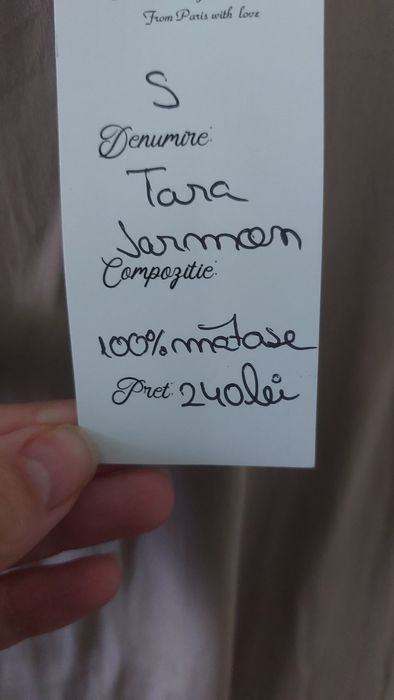 From Paris with love
S
Denumire:
Tara
Jarmon
Compozitie:
100% mătase
Pret: 240 lei